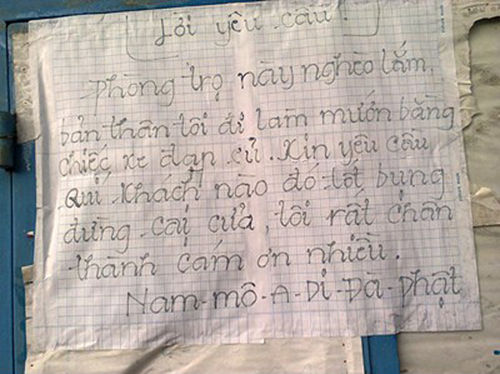 Lời yêu cầu!
Phòng trọ này nghèo lắm,
bản thân tôi đi làm mướn bằng
chiếc xe đạp củ. Xin yêu cầu
Quí khách nào đó tốt bụng
đừng cạy cửa, tôi rất chân
thành cám ơn nhiều.
Nam-mô-A-Di-Đà-Phật